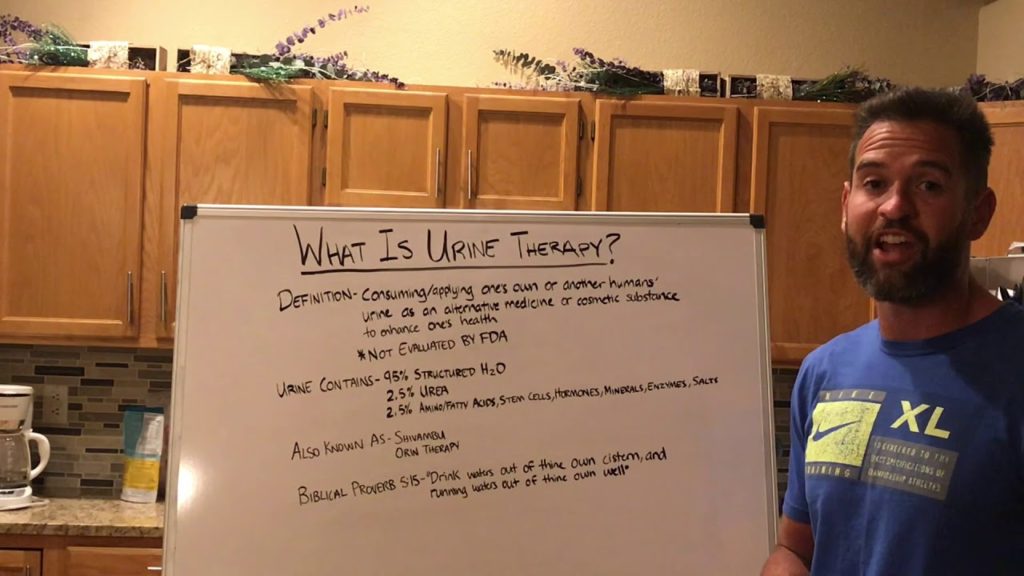 WHAT IS URINE THERAPY?
DEFINITION- Consuming/applying one's own or another humans'
urine as an alternative medicine or cosmetic substance
to enhance one's health
*NOT EVALUATED BY FDA
URINE CONTAINS- 95% STRUCTURED H2O
2.5% UREA
2.5% AMINO/FATTY ACIDS, STEM CELLS, HORMONES, MINERALS, ENZYMES, SALTS
ALSO KNOWN AS- SHIVAMBU
ORIN THERAPY
BIBLICAL PROVERB 5:15- "Drink waters out of thine own cistern, and
running waters out of thine own well"
NIKE
XL
TRAINING
ENGINEERED TO THE
EXACT SPECIFICATIONS OF
CHAMPIONSHIP ATHLETES